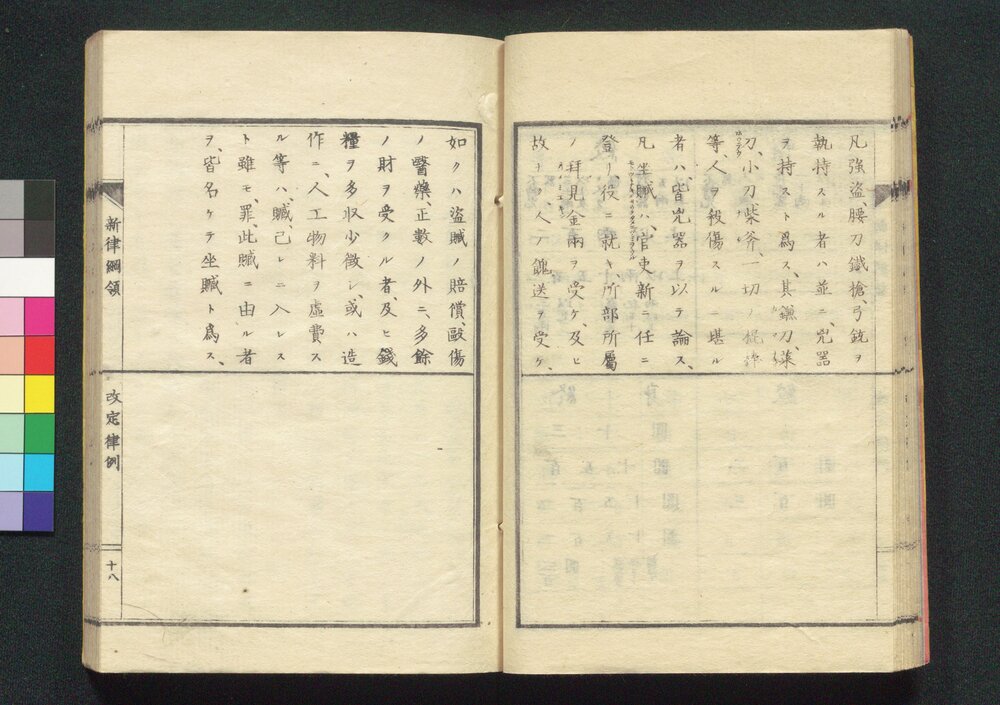 凡強盗、腰刀鐵槍、弓銃ヲ
執持スル者ハ並ニ、兇器
ヲ持スト為ス、其鎌刀、菜
刀、小刀、柴斧、一切ノ棍棒
等、人ヲ殺傷スルニ堪ル
者ハ、皆兇器ヲ以テ論ス、
凡坐贓ハ、官吏、新ニ任ニ
登リ、役ニ就キ、所部所屬
ノ拜見金兩ヲ受ケ、及ヒ
故ナク、人ノ餽送ヲ受ケ、
如クハ盗贓ノ賠償、毆傷
ノ醫藥、正數ノ外ニ、多餘
ノ財ヲ受クル者、及ヒ錢
糧ヲ多収少徴シ、或ハ造
作ニ、人工物料ヲ虚費ス
ル等ハ、贓、己レニ入レス
ト雖モ、罪、此贓ニ由ル者
ヲ、皆名ケテ坐贓ト為ス、
新律綱領
改定律例
十八